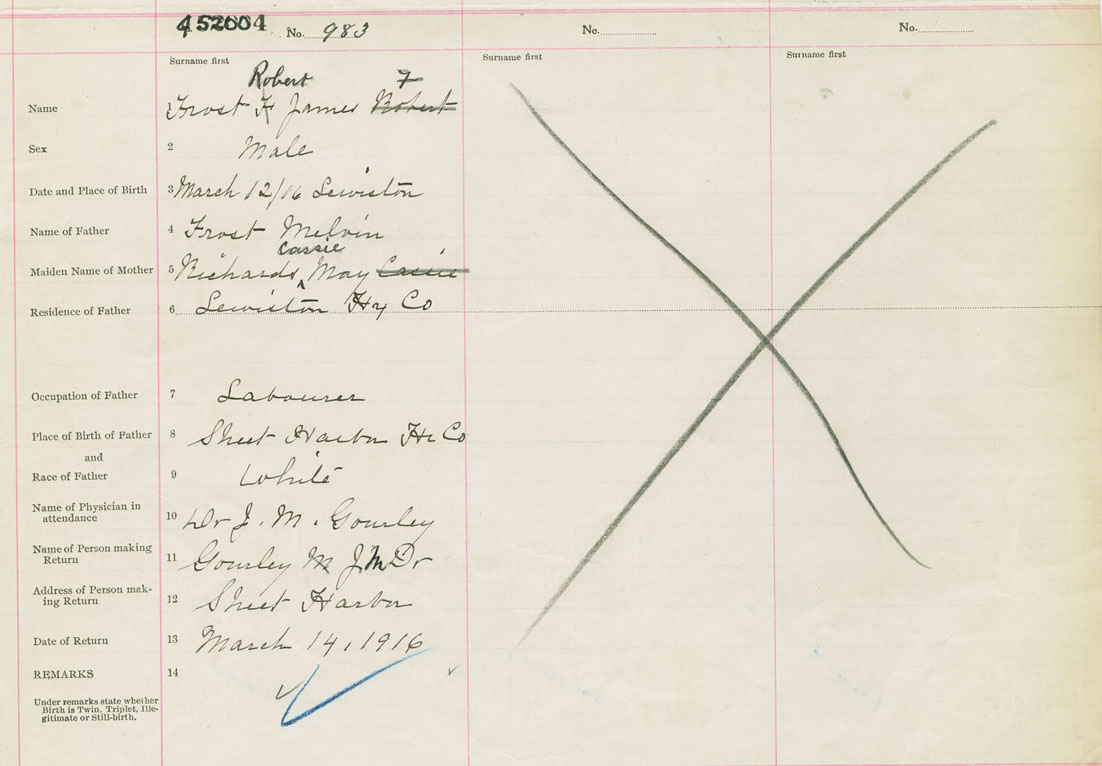 452604 No. 983 No. No.
Surname first Surname first Surname first
Robert F
Name 1 Frost James Robert
Sex 2 Male
Date and Place of Birth 3 March 12/16 Lewiston
Name of Father 4 Frost Melvin
Cassie
Maiden Name of Mother 5 Richards, May Cassie
Residence of Father 6 Lewiston Hx Co
Occupation of Father 7 Labourer
Place of Birth of Father 8 Sheet Harbor Hx Co
and
Race of Father 9 White
Name of Physician in
attendance 10 Dr J. M. Gourley
Name of Person making
Return 11 Gourley M J M Dr
Address of Person mak-
ing Return 12 Sheet Harbor
Date of Return 13 March 14, 1916
REMARKS 14
Under remarks state whether
Birth is Twin, Triplet, Ille-
gitimate or Still-birth.